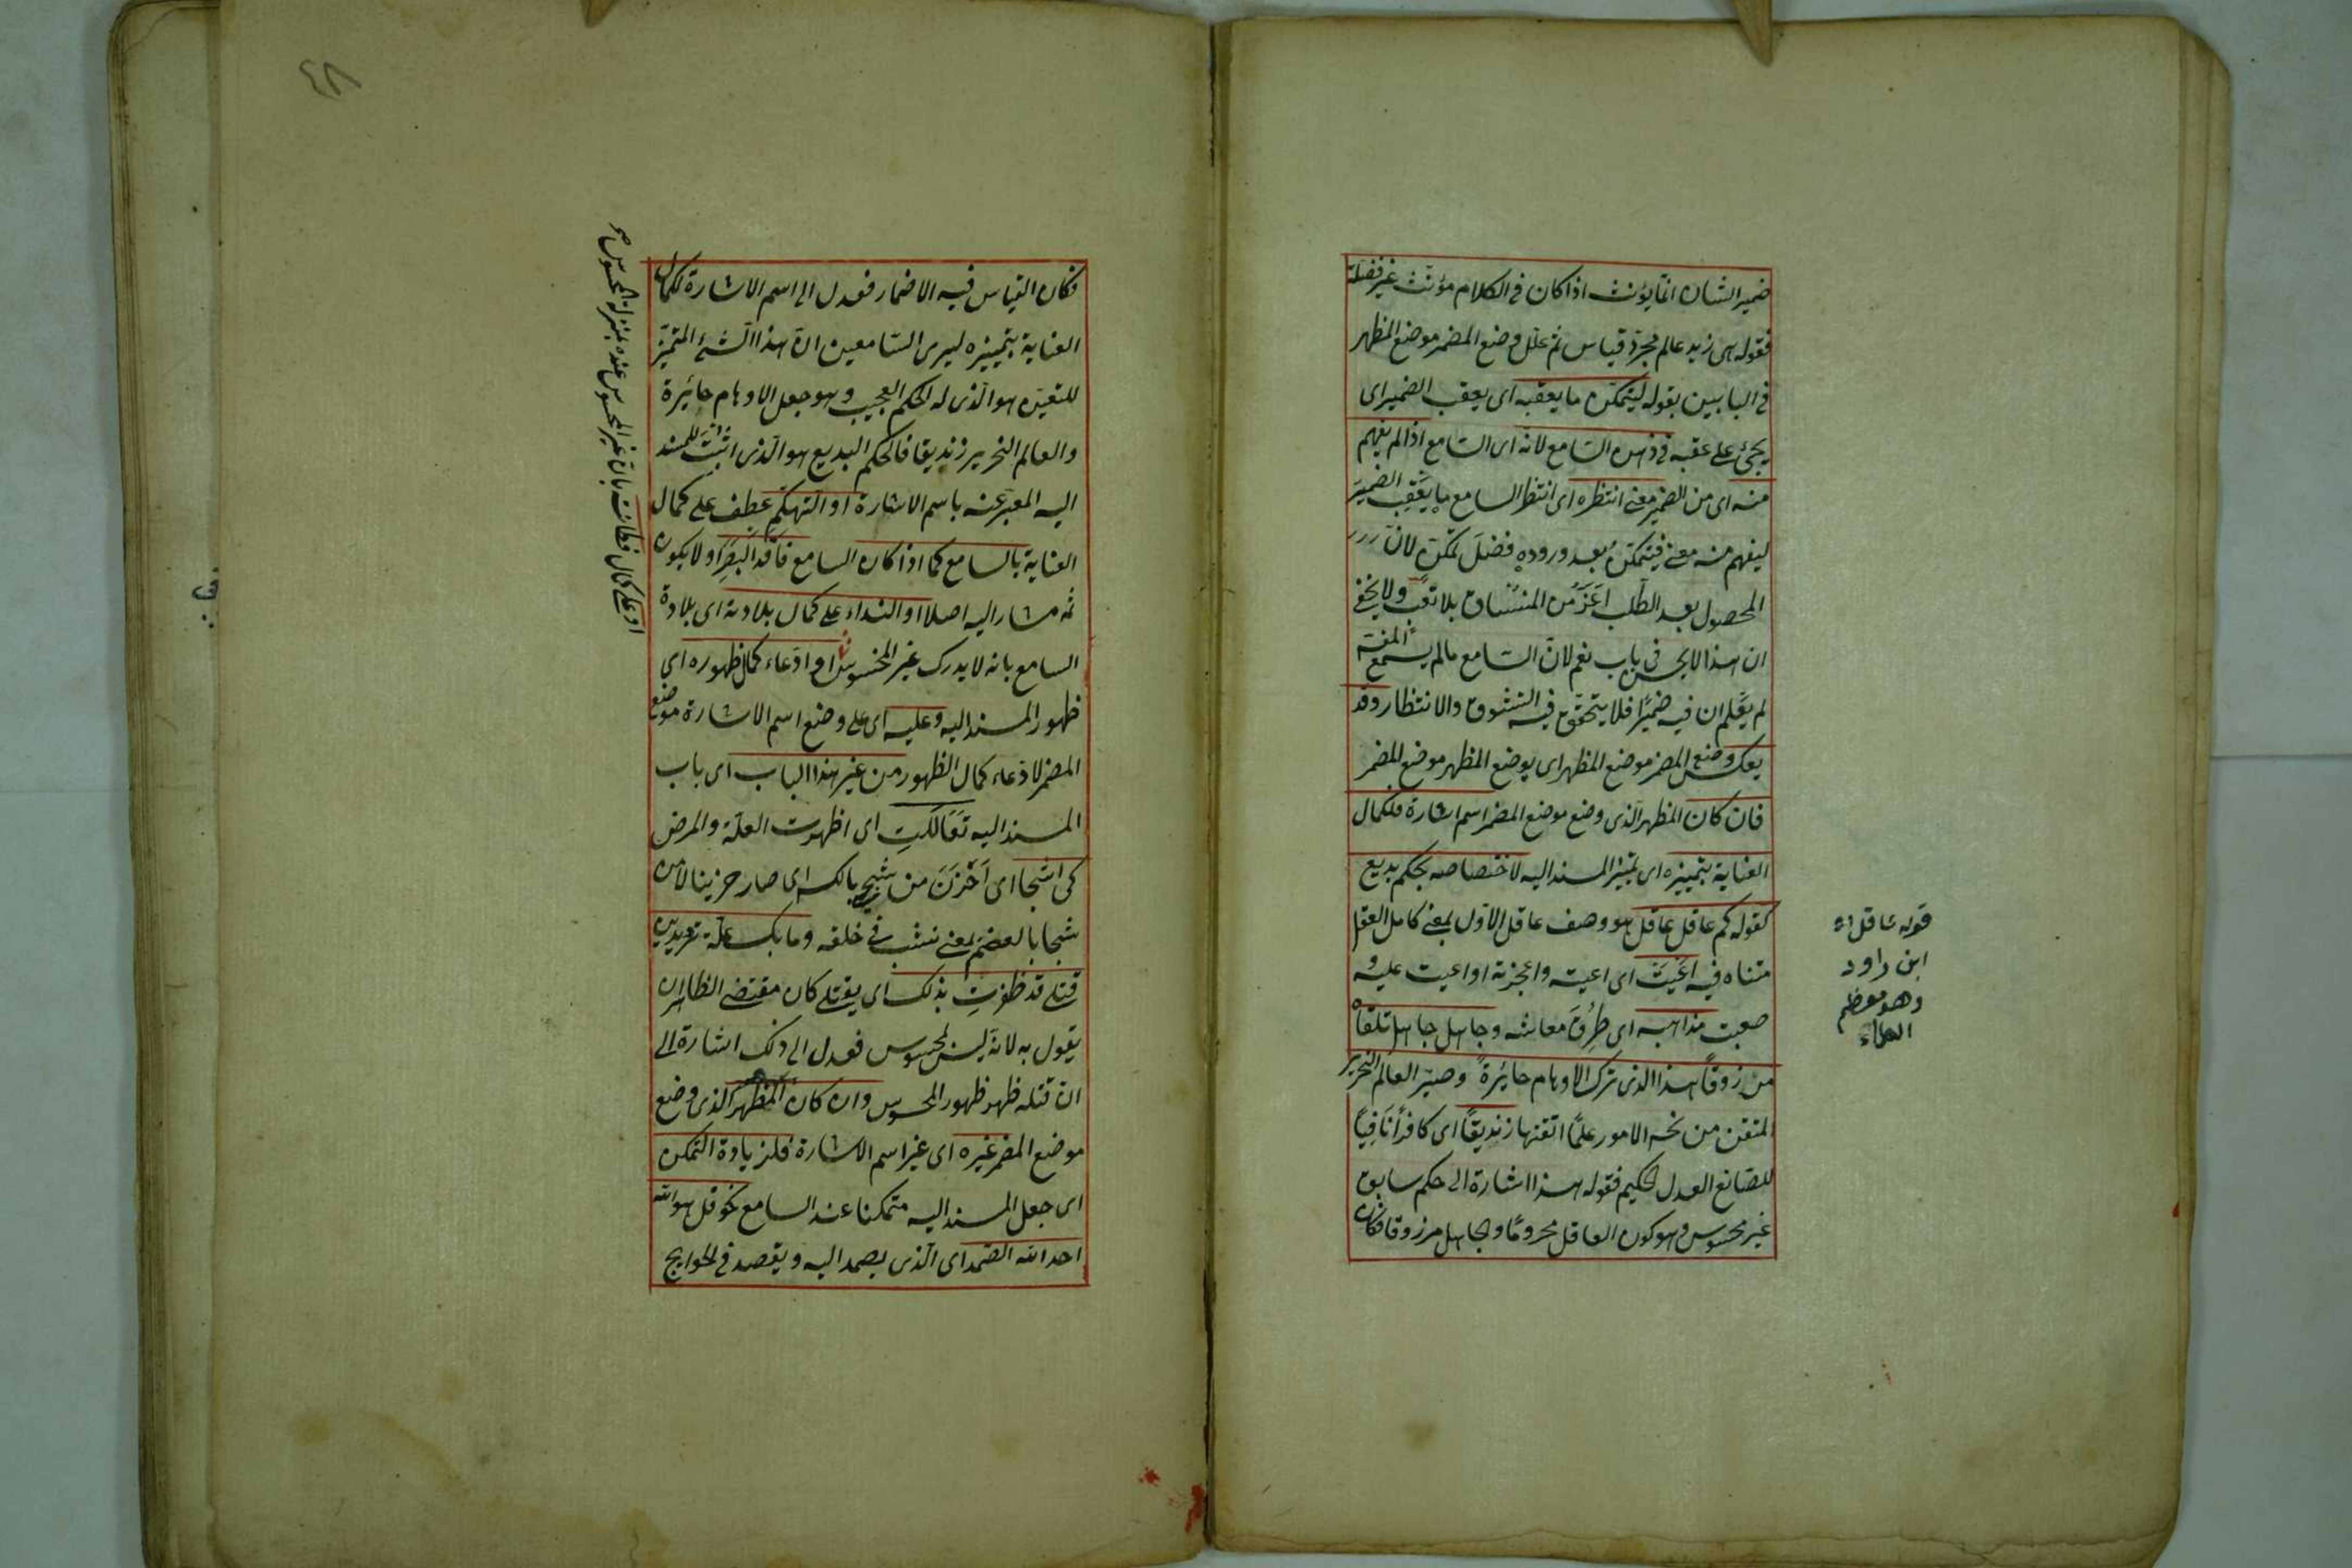 ضمير الشان انما يؤنث اذا كان فى الكلام مؤنث غير فضلة
فقوله هى زيد عالم مجرد قياس ثم علل وضع المضمر موضع المظهر
فى البابين بقوله ليتمكن ما يعقبه اى يعقب الضمير اى
يجئ على عقبه فى ذهن السامع لانه اى السامع اذا لم يفهم
منه اى من الضمير معنى انتظره اى انتظر السامع ما يعقب الضمير
ليفهم منه معنى فيتمكن بعد وروده فضل تمكن لان
المحصول بعد الطلب اعز من المنساق بلا تعب ولا يخفى
ان هذا لا يحسن فى باب نعم لان السامع ما لم يسمع المفسر
لم يعلم ان فيه ضميرا فلا يتحقق فيه التشوق والانتظار وقد
يعكس وضع المضمر موضع المظهر اى يوضع المظهر موضع المضمر
فان كان المظهر الذى وضع موضع المضمر اسم اشارة فلكمال
العناية بتمييزه اى تمييز المسند اليه لاختصاصه بحكم بديع
كقوله كم عاقل عاقل هو وصف عاقل الاول بمعنى كامل العقل
متناه فيه اعيت اى اعيته واعجزته او اعيت عليه و
صعبت مذاهبه اى طرق معاشه وجاهل جاهل تلقاه
مرزوقا هذا الذى ترك الاوهام حائرة وصير العالم النحرير
المتقن من نحر الامور علما اتقنها زنديقا اى كافرا نافيا
للصانع العدل الحكيم فقوله هذا اشارة الى حكم سابق
غير محسوس وهو كون العاقل محروما والجاهل مرزوقا فكان
قوله عاقل اه
ابن راود
وهو معظم
العلماء
فكان القياس فيه الاضمار فعدل الى اسم الاشارة لكمال
العناية بتمييزه ليرى السامعين ان هذا الشئ المتميز
المتعين هو الذى له الحكم العجيب وهو جعل الاوهام حائرة
والعالم النحرير زنديقا فالحكم البديع هو الذى اثبت للمسند
اليه المعبر عنه باسم الاشارة او التهكم عطف على كمال
العناية بالسامع كما اذا كان السامع فاقد البصر او لا يكون
ثمه مشار اليه اصلا او النداء على كمال بلادته اى بلادة
السامع بانه لا يدرك غير المحسوس او ادعاء كمال ظهوره اى
ظهور المسند اليه وعليه اى على وضع اسم الاشارة موضع
المضمر لادعاء كمال الظهور من غير هذا الباب اى باب
المسند اليه تعاللت اى اظهرت العلة والمرض
كى اشجا اى احزن من شجى بالكسر اى صار حزينا لا من
شجا بالعظم بمعنى نشب فى حلقه وما بك علة تريدين
قتلى قد ظفرت بذلك اى بقتلى كان مقتضى الظاهر ان
يقول به لانه ليس بمحسوس فعدل الى ذلك اشارة الى
ان قتله ظهر ظهور المحسوس وان كان المظهر الذى وضع
موضع المضمر غيره اى غير اسم الاشارة فلزيادة التمكن
اى جعل المسند اليه متمكنا عند السامع نحو قل هو الله
احد الله الصمد اى الذى يصمد اليه ويقصد فى الحوايج
او على كمال فطانته بان غير المحسوس عنده بمنزلة المحسوس